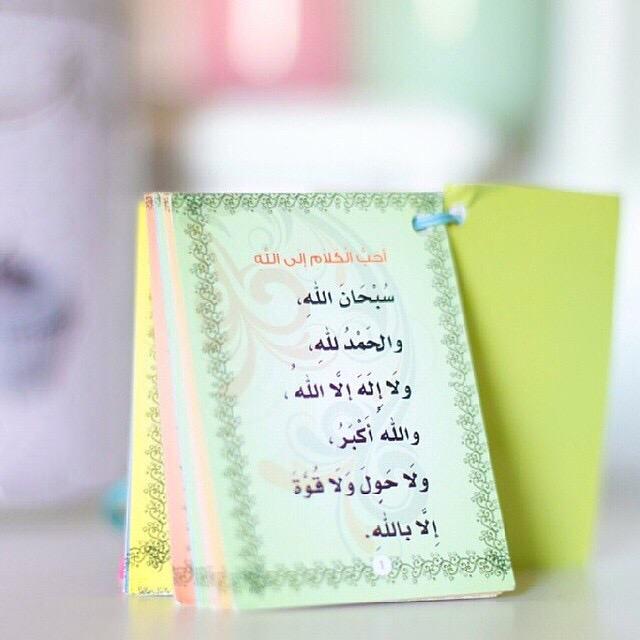 أحب الكلام إلى الله
سُبْحَانَ اللهِ،
والحَمْدُ للهِ،
ولَا إِلَهَ إلَّا اللهُ،
واللهُ أَكْبَرُ،
ولَا حَوِلَ وَلَا قُوَّةَ
إِلَّا بِاللهِ.
1